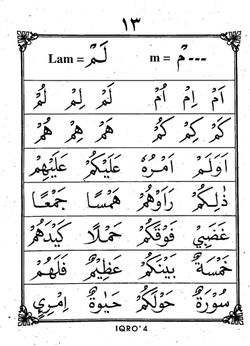 ١٣
Lam = لَمْ    m = مْ---
اَمْ اِمْ اُمْ لَمْ لِمْ لُمْ
كَمْ كِمْ كُمْ هَمْ هِمْ هُمْ
اَوَلَمْ اَمْرُهُ عَلَيْكُمْ عَلَيْهِمْ
ذٰلِكُمْ رَاَوْهُمْ هَمْسًا جَمْعًا
غَضَبِيْ فَوْقَكُمْ حَمْلًا كَيْدَهُمْ
خَمْسَةٌ بَيْنَكُمْ عَظِيْمٌ فَلَهُمْ
سُوْرَةٌ حَوْلَكُمْ حَيٰوةٌ اِمْرِيْ
IQRO' 4